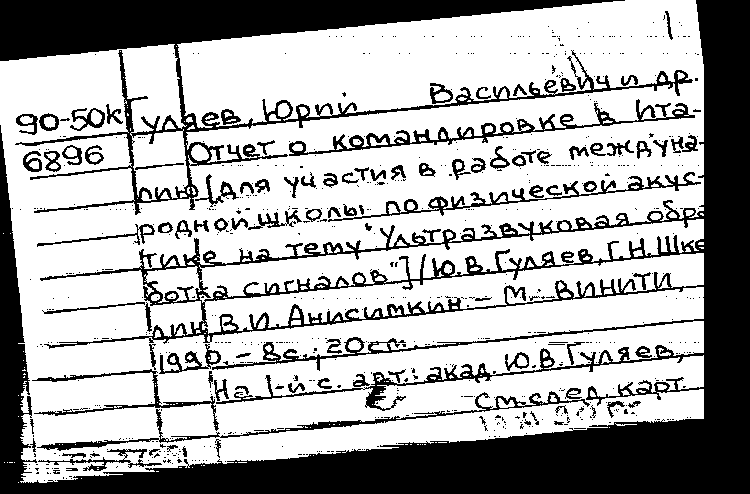 1
90-50к Гуляев, Юрий Васильевич и др.
6896 Отчет о командировке в Ита-
лию [для участия в работе междуна-
родной школы по физической акус-
тике на тему "Ультразвуковая обра-
ботка сигналов"] / Ю.В. Гуляев, Г.Н. Шке
лин, В.И. Анисимкин. – М.: ВИНИТИ,
1990. – 8с.; 20см.
На 1-й с. авт.: акад. Ю.В. Гуляев,
См. след. карт